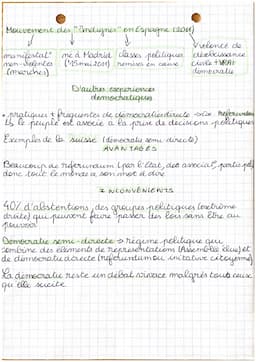 Mouvement des "Indignés" en Espagne (2011)
manifestat° non-violentes (marches)
né à Madrid (15 mai 2011)
classes politiques remises en cause
violence de désobéissance civile + VRAI democratie
D'autres experiences democratiques
• pratiques + frequentes de democratie directe
le peuple est associé à la prise de decisions politiques
Exemples de la Suisse (democratie semi directe)
AVANTAGES
Beaucoup de referundum (par l'état, des associat°, partis pol)
donc tout le monde a son mot à dire
INCONVÉNIENTS
40% d'abstentions, des groupes politiques (extrême
droite) qui peuvent faire passer des lois sans être au
pouvoir
Democratie semi-directe => régime politique qui
combine des éléments de representations (Assemblée élue) et
de democratie directe (referundum ou initiative citoyenne)
La démocratie reste un debat vivace malgrés tout ceux
qu'elle suscite.